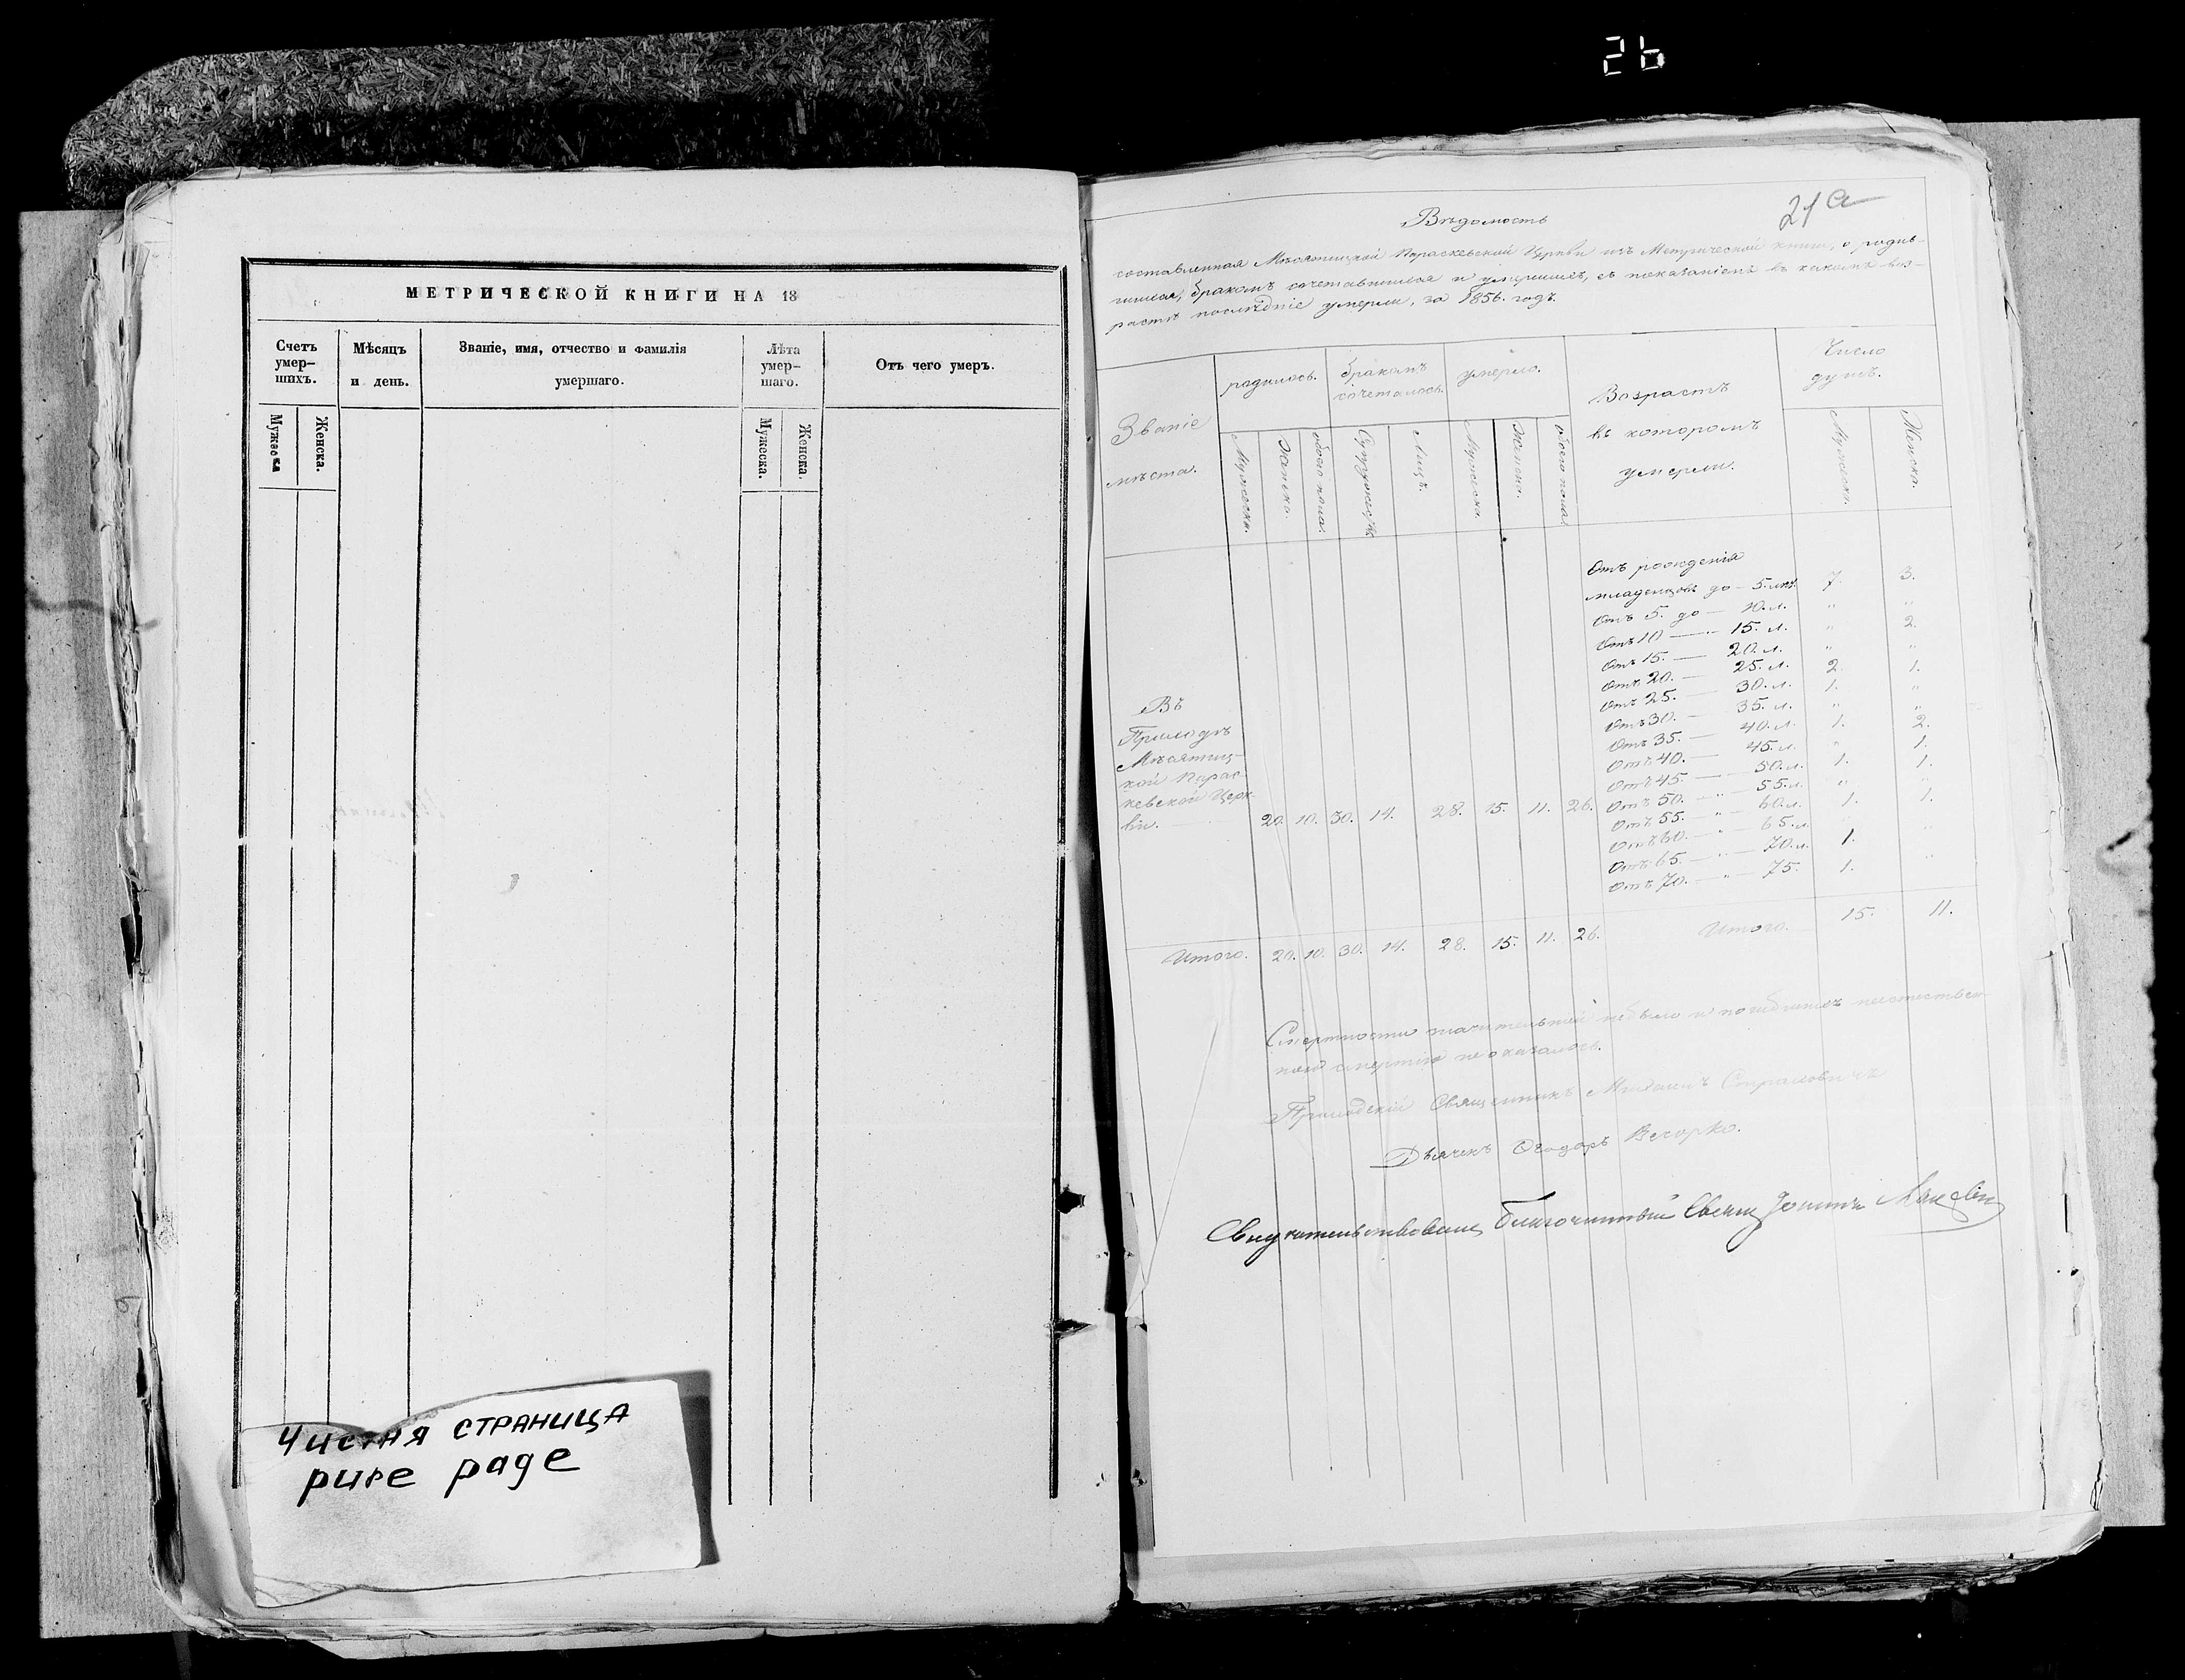 26
МЕТРИЧЕСКОЙ КНИГИ НА 18
Счетъ умер-шихъ.
Мѣсяцъ и день.
Званіе, имя, отчество и фамилія умершаго.
Лѣта умер-шаго.
Отъ чего умеръ.
Мужеска
Женска.
Мужеска.
Женска.
Чистая страница
pure page
21 а
Вѣдомость
составленная Мѣсятицкой Параскевской Церкви изъ Метрической книги, о родив-
шихся, бракомъ сочетавшихся и умершихъ, съ показаніемъ въ какомъ воз-
растѣ послѣдніе умерли, за 1856. годъ.
Званіе мѣста.
родилось.
бракомъ сочеталось.
умерло.
Возрастъ въ которомъ умерли.
Число душъ.
Мужеска.
Женска.
обоего пола.
Супружес.
Лицъ.
Мужеска.
Женска.
обоего пола.
Мужеска.
Женска.
Отъ рожденія
младенцовъ до — 5. лѣт. 7. 3.
Отъ 5. до — 10. л. " "
Отъ 10 — 15. л. " 2.
Отъ 15. — 20. л. " "
Отъ 20. — 25. л. 2. 1.
Отъ 25. — 30. л. 1. "
Отъ 30. — 35. л. " "
Отъ 35. — 40. л. 1. 2.
Отъ 40. — 45. л. " 1.
Отъ 45. — 50. л. 1. 1.
Отъ 50. — " — 55. л. " "
Отъ 55. — " — 60. л. 1. 1.
Отъ 60. — " — 65. л.
Отъ 65. — " — 70. л. 1. "
Отъ 70. — " — 75. 1. "
Въ
Приходѣ
Мѣсятиц-
кой Парас-
кевской Церк-
ви. 20. 10. 30. 14. 28. 15. 11. 26.
Итого. 20. 10. 30. 14. 28. 15. 11. 26. Итого. 15. 11.
Смертности значительной небыло и погибшихъ неестествен-
ною смертію не оказалось.
Приходскій Священникъ Михаилъ Страловичъ
Дьячекъ Ѳеодоръ Вечорко.
Благочинный